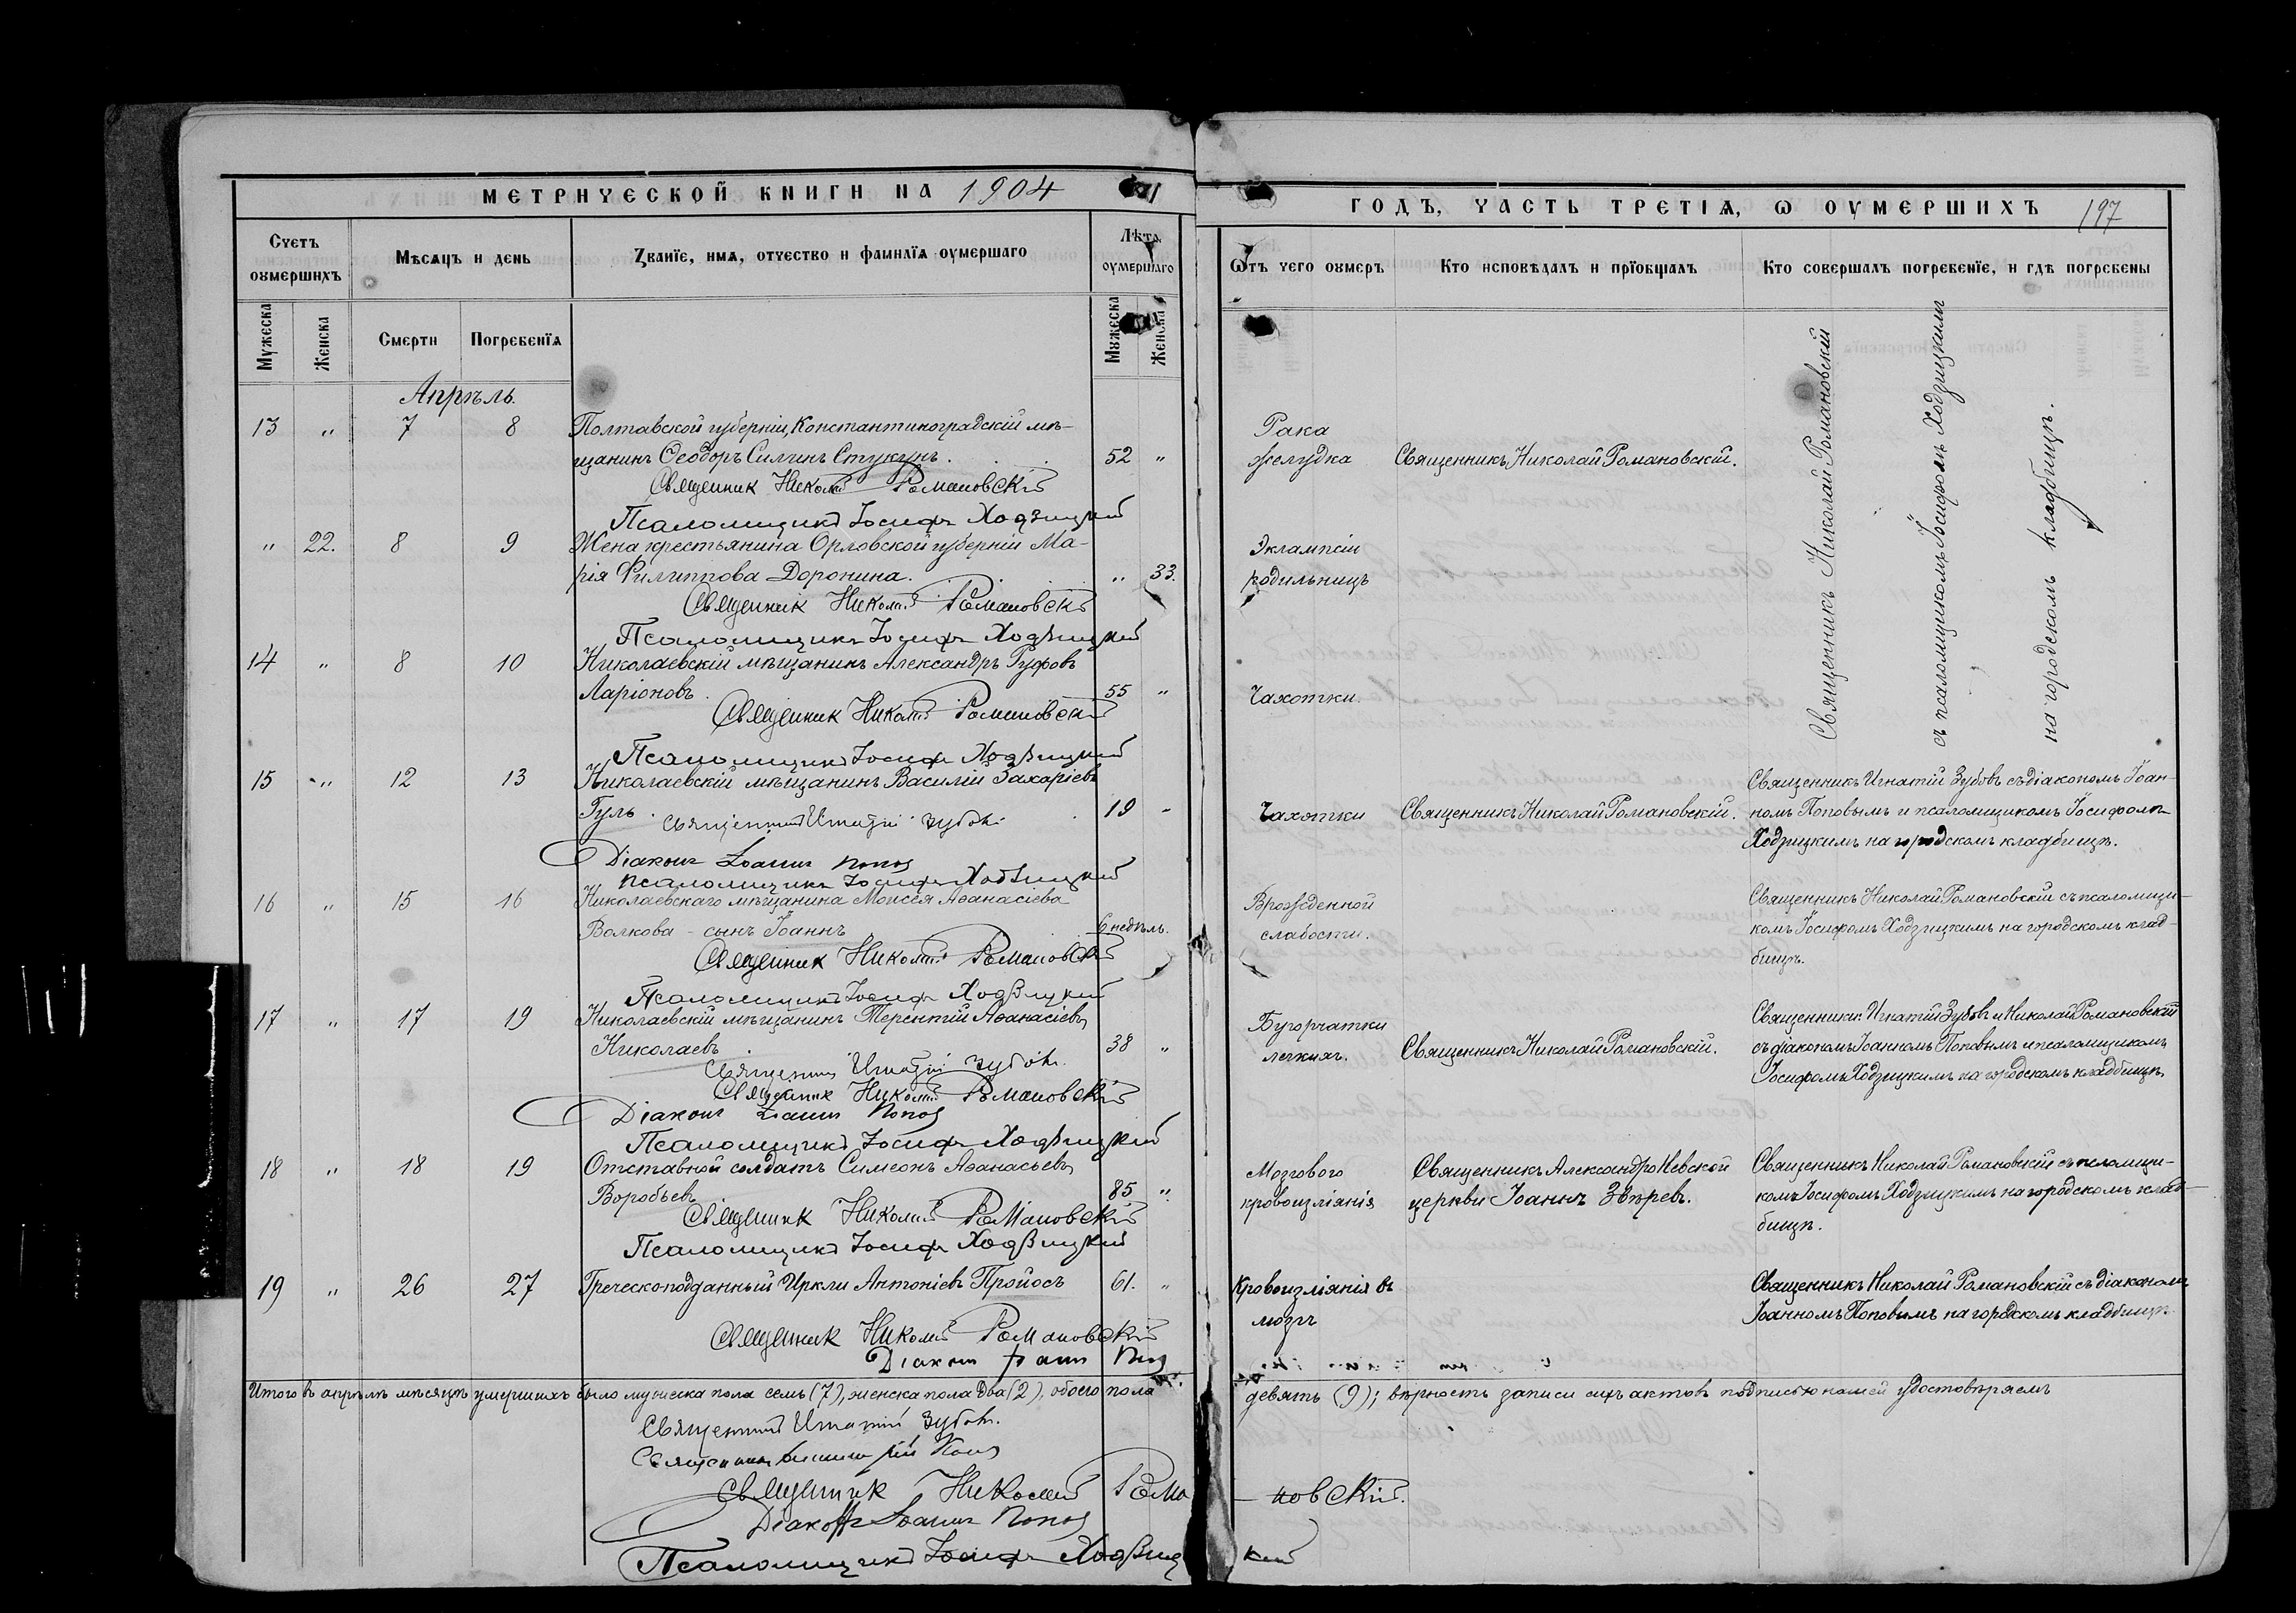 МЕТРИЧЕСКОЙ КНИГИ НА 1904
ГОДЪ, ЧАСТЬ ТРЕТІѦ, Ѡ ОУМЕРШИХЪ 197
Счетъ оумершихъ
Мѣсѧцъ и день
Званїе, имѧ, отчество и фамилїѧ оумершаго
Лѣта оумершаго
Ѿтъ чего оумеръ
Кто исповѣдалъ и прїобщалъ
Кто совершалъ погребенїе, и гдѣ погребены
Мужеска
Женска
Смерти
Погребенїѧ
Мужеска
Женска
Апрѣль.
13 " 7 8 Полтавской губерніи, Константиноградскій мѣ-
щанинъ Ѳеодоръ Силинъ Стукунъ. 52 "
Рака
желудка
Священникъ Николай Романовскій.
Священникъ Николай Романовскій
съ псаломщикомъ Іосифомъ Ходзицкимъ
на городскомъ кладбищѣ.
Священник Николай Романовскій
Псаломщикъ Іосифъ Ходзицкій
" 22. 8 9 Жена крестьянина Орловской губерніи Ма-
рія Филиппова Доронина. " 33.
Эклампсіи
родильницъ
Священник Николай Романовскій
Псаломщикъ Іосифъ Ходзицкій
14 " 8 10 Николаевскій мѣщанинъ Александръ Руфовъ
Ларіоновъ. 55 "
Чахотки.
Священник Николай Романовскій
Псаломщикъ Іосифъ Ходзицкій
15 " 12 13 Николаевскій мѣщанинъ Василій Захаріевъ
Гуль. 19 "
Чахотки
Священникъ Николай Романовскій.
Священникъ Игнатій Зубовъ съ діакономъ Іоан-
номъ Поповымъ и псаломщикомъ Іосифомъ
Ходзицкимъ на городскомъ кладбищѣ.
Священникъ Игнатій Зубовъ
Діаконъ Іоаннъ Попов
Псаломщикъ Іосифъ Ходзицкій
16 " 15 16 Николаевскаго мѣщанина Моисея Аѳанасіева
Волкова - сынъ Іоаннъ 6 недѣль.
Врожденной
слабости.
Священникъ Николай Романовскій съ псаломщи-
комъ Іосифомъ Ходзицкимъ на городскомъ клад-
бищѣ.
Священник Николай Романовскій
Псаломщикъ Іосифъ Ходзицкій
17 " 17 19 Николаевскій мѣщанинъ Терентій Аѳанасіевъ
Николаевъ 38 "
Бугорчатки
легкихъ.
Священникъ Николай Романовскій.
Священники: Игнатій Зубовъ и Николай Романовскій
съ діакономъ Іоанномъ Поповымъ и псаломщикомъ
Іосифомъ Ходзицкимъ на городскомъ кладбищѣ.
Священникъ Игнатій Зубовъ.
Священник Николай Романовскій
Діаконъ Іоаннъ Попов
Псаломщикъ Іосифъ Ходзицкій
18 " 18 19 Отставной солдатъ Симеонъ Аѳанасьевъ
Воробьевъ 85 "
Мозгового
кровоизліянія
Священникъ Александро Невской
церкви Іоаннъ Звѣревъ.
Священникъ Николай Романовскій съ псаломщи-
комъ Іосифомъ Ходзицкимъ на городскомъ клад-
бищѣ.
Священник Николай Романовскій
Псаломщикъ Іосифъ Ходзицкій
19 " 26 27 Греческоподданный Иркли Антоніевъ Пройосъ 61. "
Кровоизліянія въ
мозгъ
Священникъ Николай Романовскій съ діакономъ
Іоанномъ Поповымъ на городскомъ кладбищѣ.
Священник Николай Романовскій
Діаконъ Іоаннъ Попов
Итого въ апрѣлѣ мѣсяцѣ умершихъ было мужеска пола семь (7), женска пола два (2), обоего пола девять (9); вѣрность записи сихъ актовъ подписью нашей удостовѣряемъ
Священникъ Игнатій Зубовъ.
Священникъ
Священник Николай Романовскій.
Діаконъ Іоаннъ Попов
Псаломщикъ Іосифъ Ходзицкій